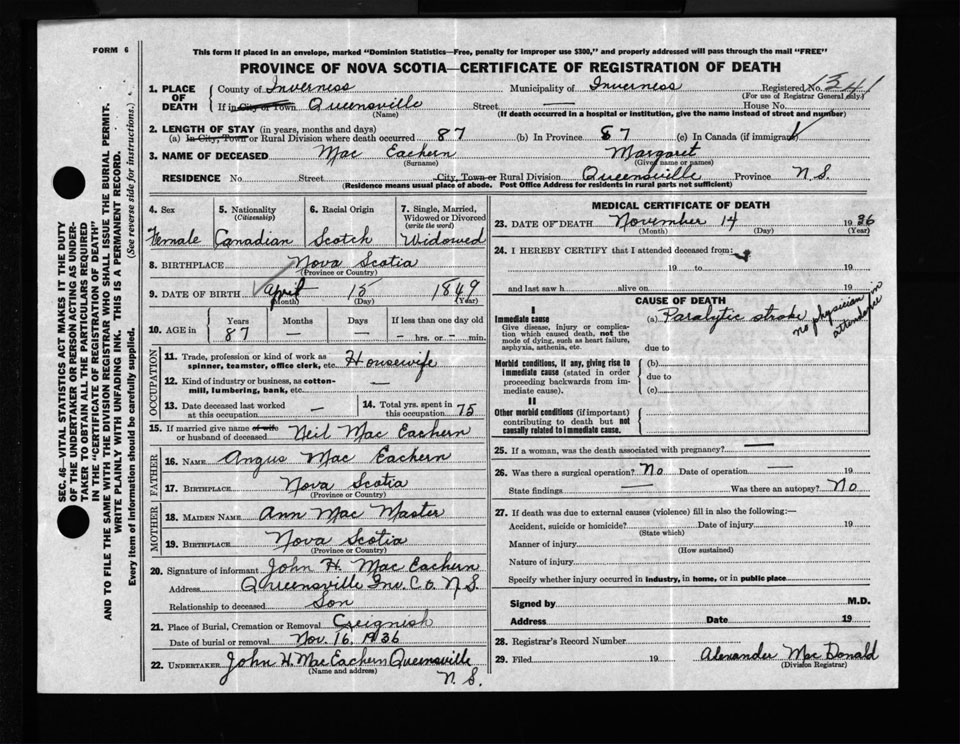 FORM 6
This form if placed in an envelope, marked "Dominion Statistics—Free, penalty for improper use $300," and properly addressed will pass through the mail "FREE"
PROVINCE OF NOVA SCOTIA—CERTIFICATE OF REGISTRATION OF DEATH
SEC. 46—VITAL STATISTICS ACT MAKES IT THE DUTY
OF THE UNDERTAKER OR PERSON ACTING AS UNDER-
TAKER TO OBTAIN ALL THE PARTICULARS REQUIRED
IN THE "CERTIFICATE OF REGISTRATION OF DEATH"
AND TO FILE THE SAME WITH THE DIVISION REGISTRAR WHO SHALL ISSUE THE BURIAL PERMIT.
WRITE PLAINLY WITH UNFADING INK. THIS IS A PERMANENT RECORD.
Every item of information should be carefully supplied. (See reverse side for instructions.)
1. PLACE OF DEATH
County of Inverness Municipality of Inverness Registered No. 1341
(For use of Registrar General only.)
If in City or Town or Queensville Street — House No.
(Name) (If death occurred in a hospital or institution, give the name instead of street and number)
2. LENGTH OF STAY (in years, months and days)
(a) In City, Town or Rural Division where death occurred 87 (b) In Province 87 (c) In Canada (if immigrant)
3. NAME OF DECEASED Mac Eachern Margaret
(Surname) (Given name or names)
RESIDENCE No. Street City, Town or Rural Division Queensville Province N.S.
(Residence means usual place of abode. Post Office Address for residents in rural parts not sufficient)
4. Sex Female
5. Nationality (Citizenship) Canadian
6. Racial Origin Scotch
7. Single, Married, Widowed or Divorced (write the word) Widowed
8. BIRTHPLACE Nova Scotia
(Province or Country)
9. DATE OF BIRTH April 15 1849
(Month) (Day) (Year)
10. AGE in Years Months Days If less than one day old
87 — — — hrs. or — min.
OCCUPATION
11. Trade, profession or kind of work as spinner, teamster, office clerk, etc. Housewife
12. Kind of industry or business, as cotton-mill, lumbering, bank, etc. —
13. Date deceased last worked at this occupation —
14. Total yrs. spent in this occupation 75
15. If married give name of wife or husband of deceased Neil Mac Eachern
FATHER
16. NAME Angus Mac Eachern
17. BIRTHPLACE Nova Scotia
(Province or Country)
MOTHER
18. MAIDEN NAME Ann Mac Master
19. BIRTHPLACE Nova Scotia
(Province or Country)
20. Signature of informant John H. Mac Eachern
Address Queensville Inv. Co. N.S.
Relationship to deceased Son
21. Place of Burial, Cremation or Removal Creignish
Date of burial or removal Nov. 16, 1936
22. UNDERTAKER John H. Mac Eachern Queensville
(Name and address) N.S.
MEDICAL CERTIFICATE OF DEATH
23. DATE OF DEATH November 14 1936
(Month) (Day) (Year)
24. I HEREBY CERTIFY that I attended deceased from:
19 to 19
and last saw h alive on 19
CAUSE OF DEATH
I
Immediate cause (a) Paralytic stroke no physician in attendance
Give disease, injury or complica-
tion which caused death, not the
mode of dying, such as heart failure,
asphyxia, asthenia, etc. due to
Morbid conditions, if any, giving rise to (b)
immediate cause (stated in order due to
proceeding backwards from im-
mediate cause). (c)
II
Other morbid conditions (if important)
contributing to death but not
causally related to immediate cause.
25. If a woman, was the death associated with pregnancy? —
26. Was there a surgical operation? No Date of operation — 19
State findings — Was there an autopsy? No
27. If death was due to external causes (violence) fill in also the following:—
Accident, suicide or homicide? Date of injury 19
(State which)
Manner of injury
(How sustained)
Nature of injury
Specify whether injury occurred in industry, in home, or in public place
Signed by M.D.
Address Date 19
28. Registrar's Record Number
29. Filed 19 Alexander Mac Donald
(Division Registrar)